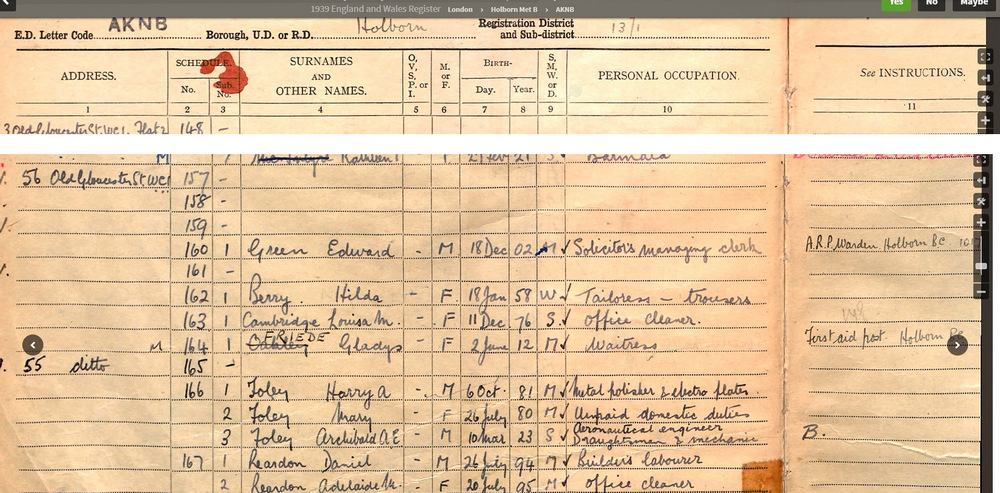 Yes No Maybe
1939 England and Wales Register London > Holborn Met B > AKNB
E.D. Letter Code AKNB Borough, U.D. or R.D. Holborn Registration District and Sub-district 13/1
ADDRESS. SCHEDULE. No. Sub. No. SURNAMES AND OTHER NAMES. O, V, S, P. or I. M. or F. BIRTH- Day. Year. S, M, W. or D. PERSONAL OCCUPATION. See INSTRUCTIONS.
1 2 3 4 5 6 7 8 9 10 11
3 Old Gloucester St. WC1. Flat 2 148 -
M Kathleen F. 21 Feb 21 S Barmaid
56 Old Gloucester St WC1 157 -
158 -
159 -
160 1 Green Edward - M 18 Dec 02 M ✓ Solicitor's managing clerk A.R.P. Warden Holborn BC
161 -
162 1 Berry. Hilda - F 18 Jan 58 W ✓ Tailoress - trousers
163 1 Cambridge Louisa M. - F 11 Dec. 76 S. ✓ office cleaner.
M 164 1 Gladys - F 2 June 12 M ✓ Waitress First aid post Holborn
55 ditto 165 -
166 1 Foley Harry A - M 6 Oct 81 M ✓ Metal polisher & electro plater
2 Foley Mary - F 26 July 80 M ✓ Unpaid domestic duties
3 Foley Archibald A E - M 10 Mar 23 S ✓ Aeronautical engineer Draughtsman & mechanic B.
167 1 Reardon Daniel - M 26 July 94 M ✓ Builder's labourer
2 Reardon Adelaide M. - F 20 July 95 M ✓ office cleaner